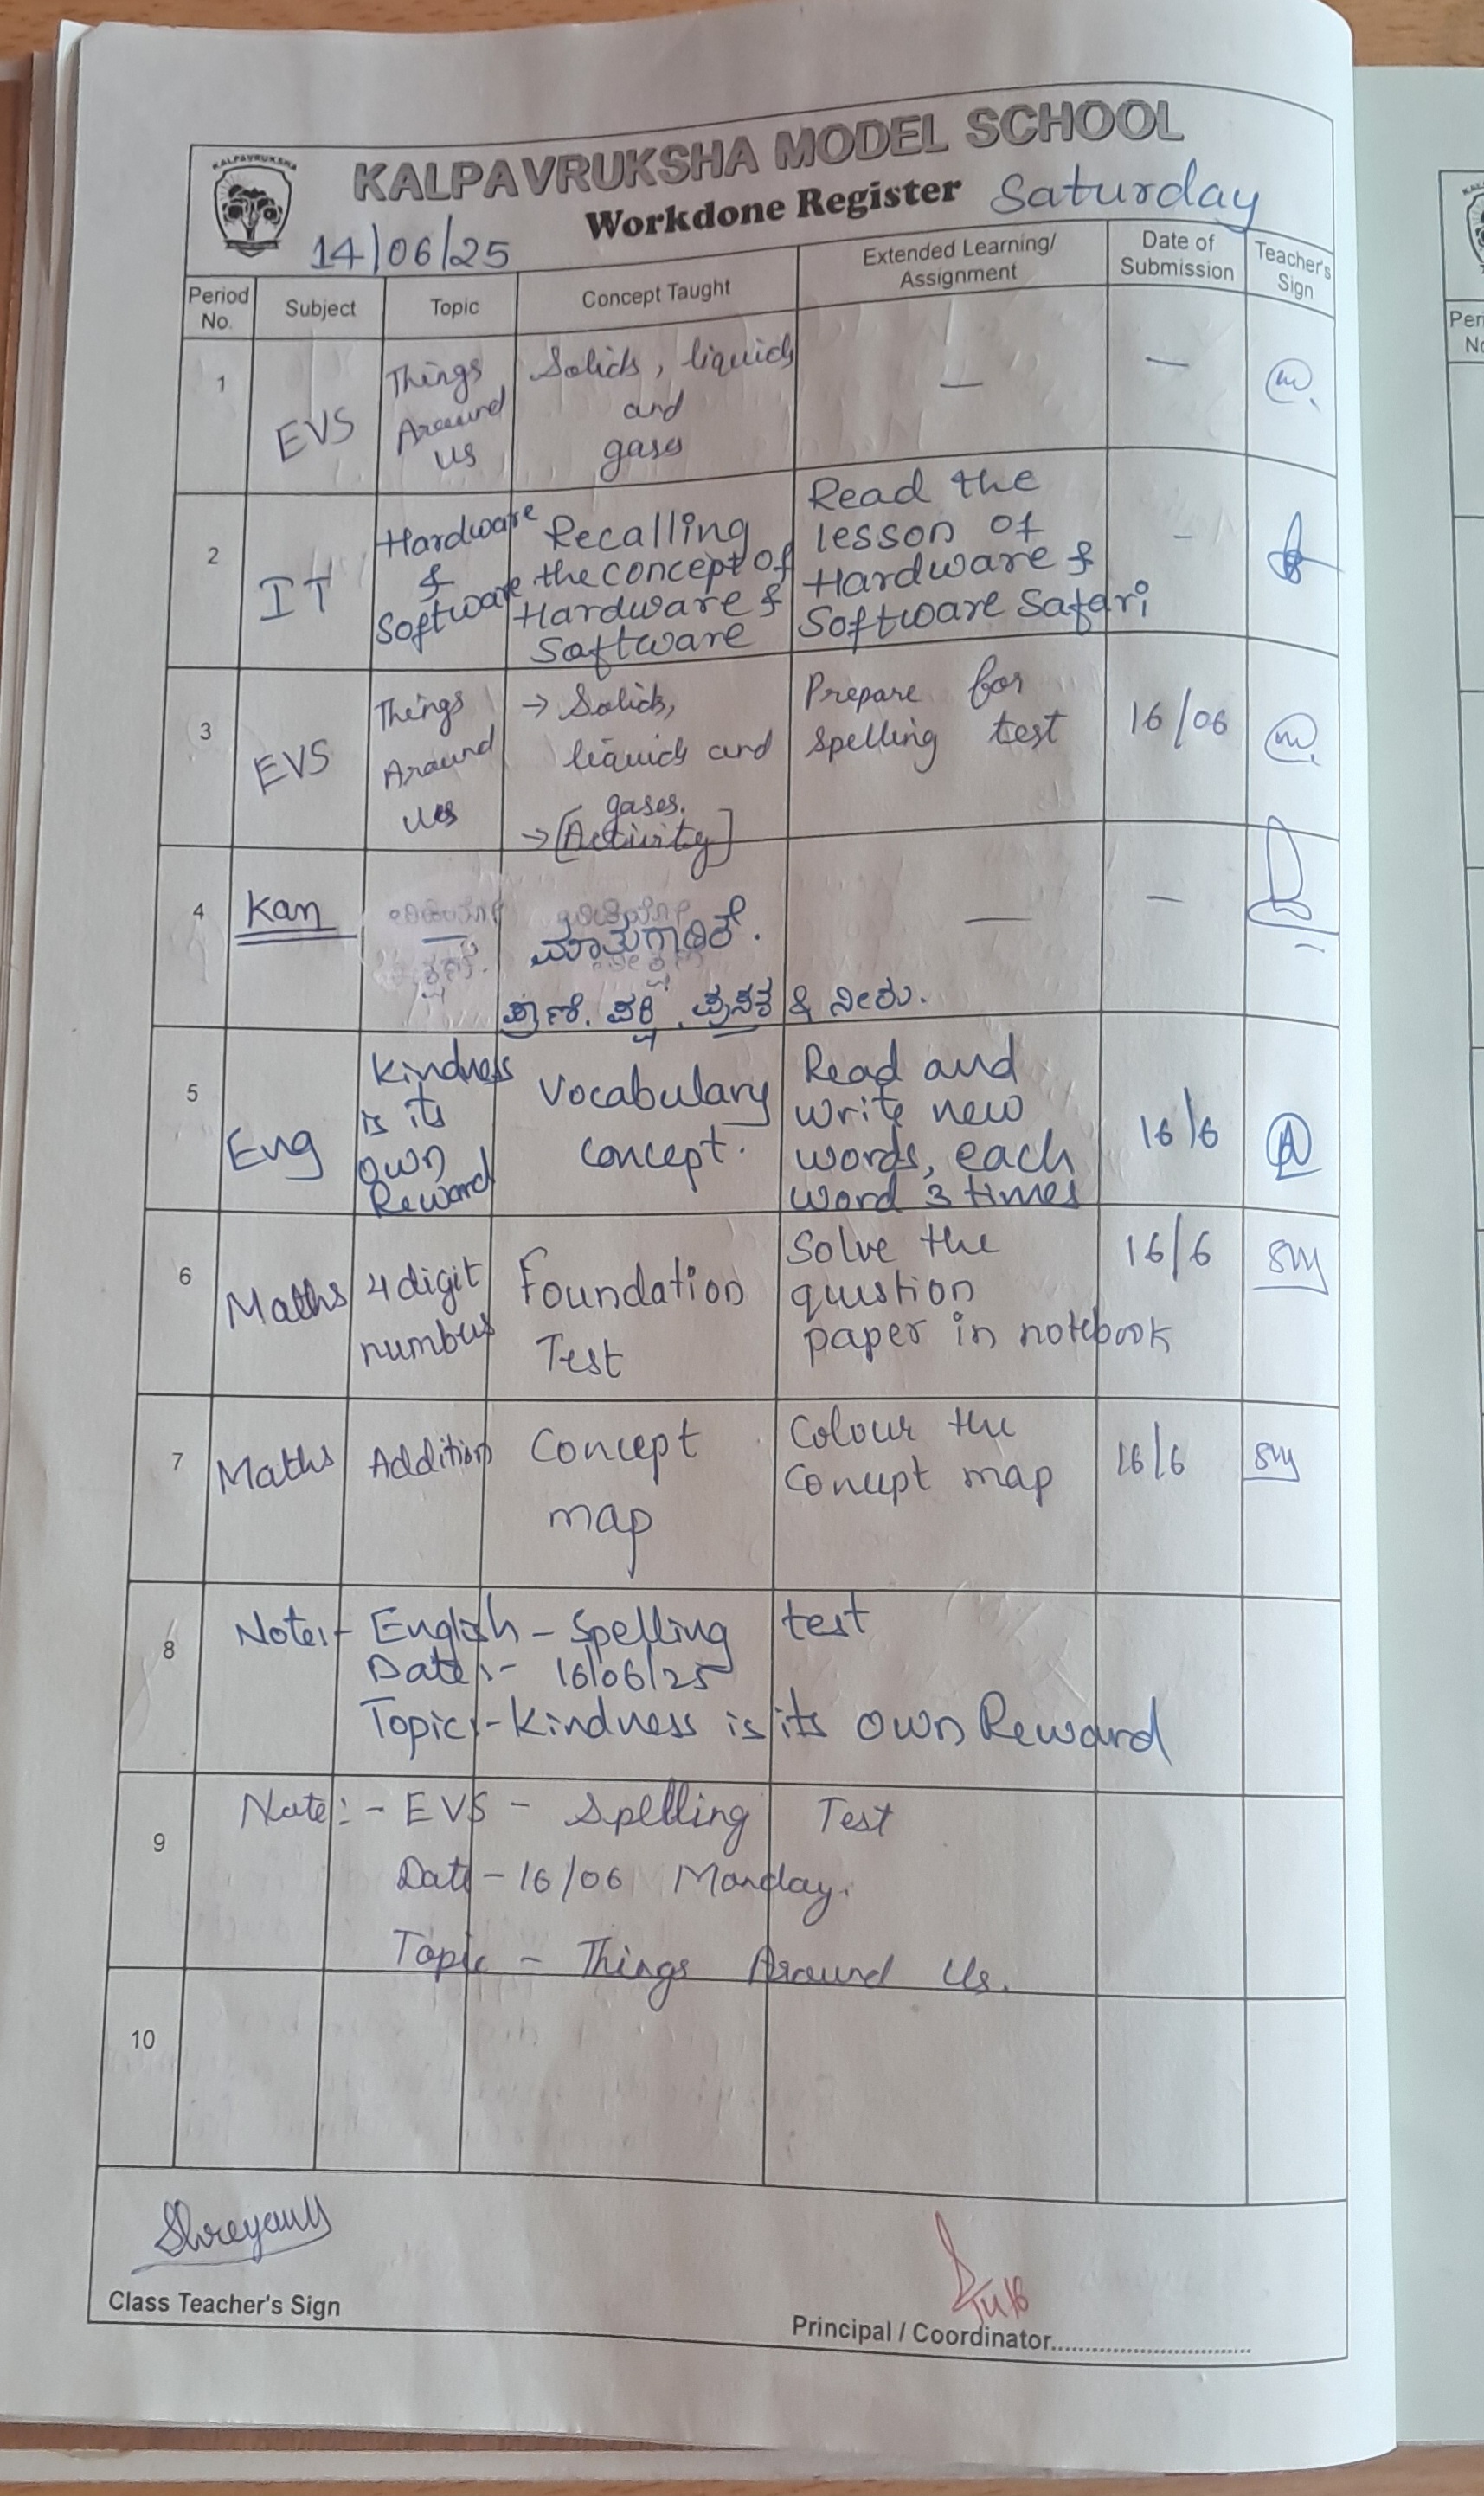 KALPAVRUKSHA
KALPAVRUKSHA MODEL SCHOOL
Workdone Register Saturday
14/06/25
Period No. Subject Topic Concept Taught Extended Learning/ Assignment Date of Submission Teacher's Sign
1 EVS Things Around us Solids, liquids and gases — —
2 IT Hardware & Software Recalling the concept of Hardware & Software Read the lesson of Hardware & Software Safari -
3 EVS Things Around us → Solids, liquids and gases. → [Activity] Prepare for spelling test 16/06
4 Kan — ಮಾತುಗಾರಿಕೆ. — —
ಪ್ರಾಣಿ. ಪಕ್ಷಿ. & ನೀರು.
5 Eng Kindness is its own Reward Vocabulary concept. Read and write new words, each word 3 times 16/6
6 Maths 4 digit numbers Foundation Test Solve the question paper in notebook 16/6 SM
7 Maths Addition Concept map Colour the Concept map 16/6 SM
8 Note:- English - Spelling test
Date:- 16/06/25
Topic:- Kindness is its own Reward
9 Note:- EVS - Spelling Test
Date - 16/06 Monday.
Topic - Things Around Us.
10
Class Teacher's Sign
Principal / Coordinator
Peri
No